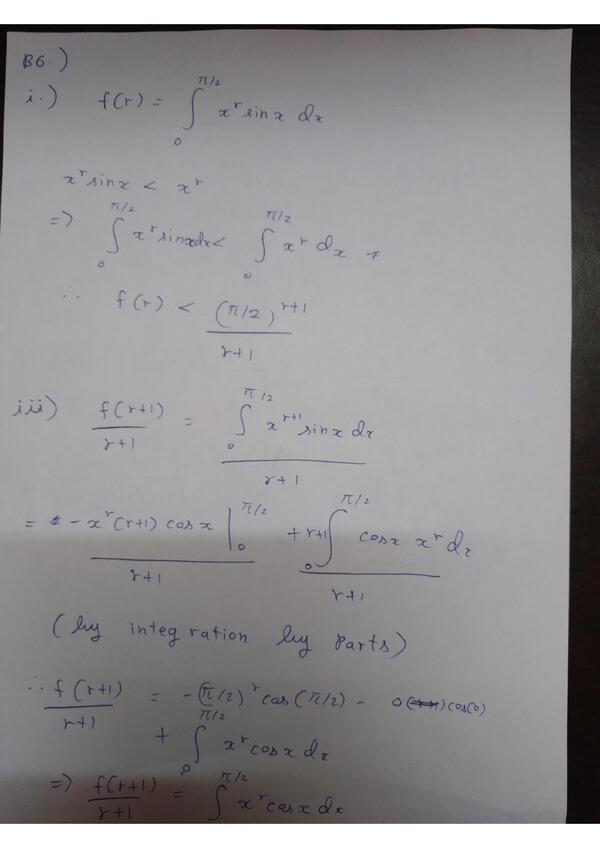 B6.)
i.) f(r) = ∫₀^{π/2} x^r sinx dx
x^r sinx < x^r
=> ∫₀^{π/2} x^r sinxdx < ∫₀^{π/2} x^r dx
∴ f(r) < (π/2)^{r+1} / r+1
iii) f(r+1) / r+1 = ∫₀^{π/2} x^{r+1} sinx dx / r+1
= - x^r (r+1) cosx |₀^{π/2} / r+1 + r+1 ∫₀^{π/2} cosx x^r dx / r+1
(by integration by parts)
∴ f(r+1) / r+1 = -(π/2)^r cos(π/2) - 0 cos(0)
+ ∫₀^{π/2} x^r cosx dx
=> f(r+1) / r+1 = ∫₀^{π/2} x^r cosx dx